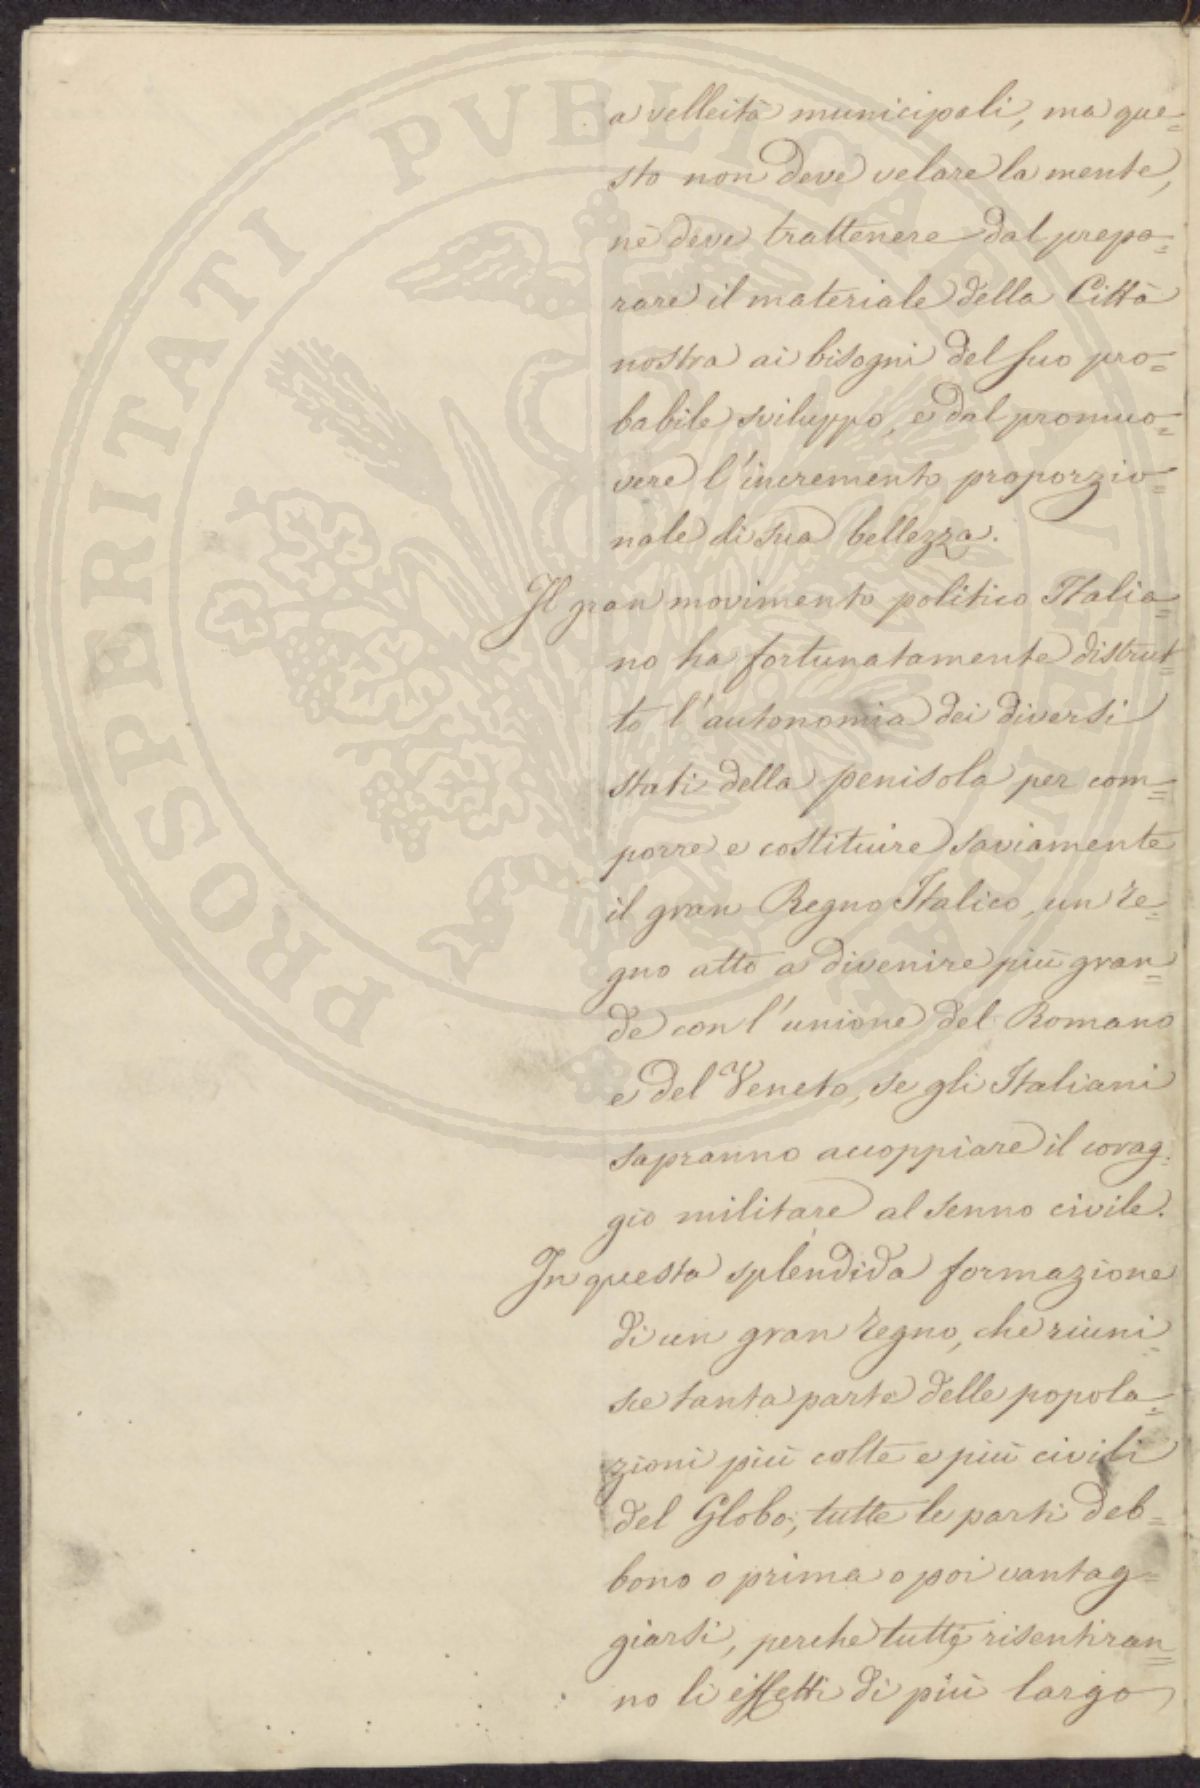 PROSPERITATI PVBLICAE AVGENDAE
a velleità municipali, ma que=
sto non deve velare la mente,
nè deve trattenere dal prepa=
rare il materiale della Città
nostra ai bisogni del suo pro=
babile sviluppo, e dal promuo=
vere l'incremento proporzio=
nale di sua bellezza.
Il gran movimento politico Italia=
no ha fortunatamente distrut=
to l'autonomia dei diversi
stati della penisola per com=
porre e costituire saviamente
il gran Regno Italico, un re=
gno atto a divenire più gran=
de con l'unione del Romano
e del Veneto, se gli Italiani
sapranno accoppiare il corag=
gio militare al senno civile.
In questa splendida formazione
di un gran regno, che riuni=
sce tanta parte delle popola=
zioni più colte e più civili
del Globo, tutte le parti deb=
bono o prima o poi vantag=
giarsi, perche tutte risentiran=
no li effetti di più largo